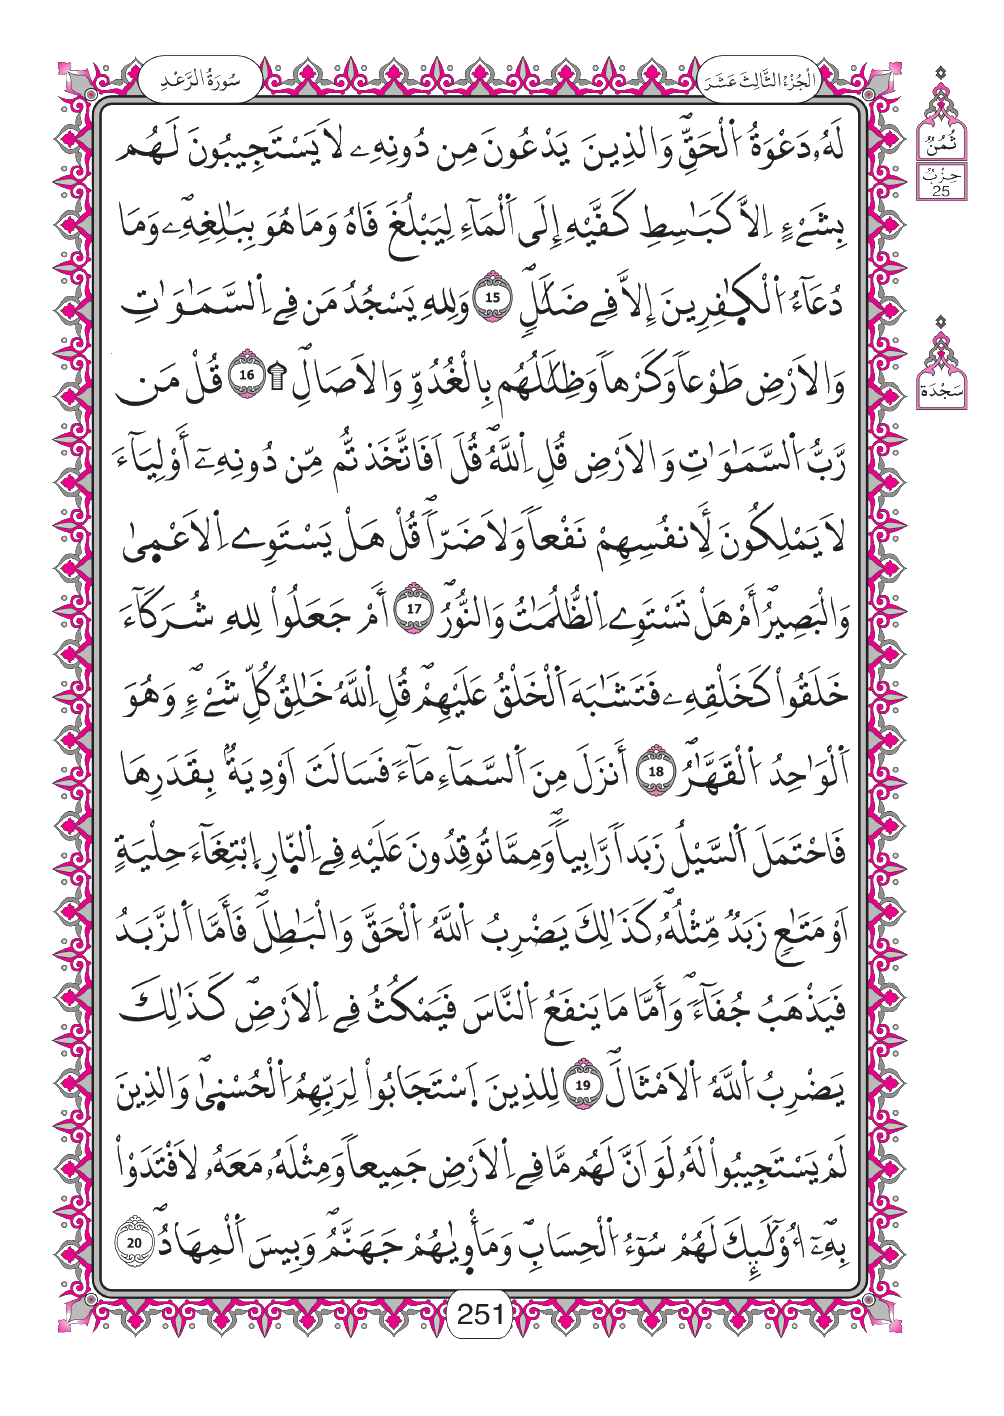 سُورَةُ الرَّعْدِ
اَلْجُزْءُ الثَّالِثَ عَشَرَ
ثُمُنُ
حِزْبُ
25
لَهُۥ دَعْوَةُ اُ۬لْحَقِّۖ وَالذِينَ يَدْعُونَ مِن دُونِهِۦ لَا يَسْتَجِيبُونَ لَهُم
بِشَےْءٍ اِلَّا كَبَٰسِطِ كَفَّيْهِ إِلَى اَ۬لْمَآءِ لِيَبْلُغَ فَاهُ وَمَا هُوَ بِبَٰلِغِهِۦۖ وَمَا
دُعَآءُ اُ۬لْكٰ۪فِرِينَ إِلَّا فِے ضَلَٰلٖۖ 15 وَلِلهِ يَسْجُدُ مَن فِے اِ۬لسَّمَٰوَٰتِ
وَالَارْضِ طَوْعاٗ وَكَرْهاٗ وَظِلَٰلُهُم بِالْغُدُوِّ وَالَاصَالِۖ ۩ 16 قُلْ مَن
سَجْدَة
رَّبُّ اُ۬لسَّمَٰوَٰتِ وَالَارْضِ قُلِ اِ۬للَّهُۖ قُلَ اَفَاتَّخَذتُّم مِّن دُونِهِۦٓ أَوْلِيَآءَ
لَا يَمْلِكُونَ لِأَنفُسِهِمْ نَفْعاٗ وَلَا ضَرّاٗۖ قُلْ هَلْ يَسْتَوِے اِ۬لَاعْم۪يٰ
وَالْبَصِيرُۖ أَمْ هَلْ تَسْتَوِے اِ۬لظُّلُمَٰتُ وَالنُّورُۖ 17 أَمْ جَعَلُواْ لِلهِ شُرَكَآءَ
خَلَقُواْ كَخَلْقِهِۦ فَتَشَٰبَهَ اَ۬لْخَلْقُ عَلَيْهِمْۖ قُلِ اِ۬للَّهُ خَٰلِقُ كُلِّ شَےْءٖۖ وَهُوَ
اَ۬لْوَٰحِدُ اُ۬لْقَهَّٰرُۖ 18 أَنزَلَ مِنَ اَ۬لسَّمَآءِ مَآءٗ فَسَالَتَ اَوْدِيَةُۢ بِقَدَرِهَا
فَاحْتَمَلَ اَ۬لسَّيْلُ زَبَداٗ رَّابِياٗۖ وَمِمَّا تُوقِدُونَ عَلَيْهِ فِے اِ۬لنّ۪ارِ اِ۪بْتِغَآءَ حِلْيَةٍ
اَوْ مَتَٰعٖ زَبَدٞ مِّثْلُهُۥۖ كَذَٰلِكَ يَضْرِبُ اُ۬للَّهُ اُ۬لْحَقَّ وَالْبَٰطِلَۖ فَأَمَّا اَ۬لزَّبَدُ
فَيَذْهَبُ جُفَآءٗۖ وَأَمَّا مَا يَنفَعُ اُ۬لنَّاسَ فَيَمْكُثُ فِے اِ۬لَارْضِۖ كَذَٰلِكَ
يَضْرِبُ اُ۬للَّهُ اُ۬لَامْثَالَۖ 19 لِلذِينَ اَ۪سْتَجَابُواْ لِرَبِّهِمُ اُ۬لْحُسْن۪يٰۖ وَالذِينَ
لَمْ يَسْتَجِيبُواْ لَهُۥ لَوَ اَنَّ لَهُم مَّا فِے اِ۬لَارْضِ جَمِيعاٗ وَمِثْلَهُۥ مَعَهُۥ لَافْتَدَوْاْ
بِهِۦٓۖ أُوْلَٰٓئِكَ لَهُمْ سُوٓءُ اُ۬لْحِسَابِۖ وَمَأْو۪يٰهُمْ جَهَنَّمُۖ وَبِيسَ اَ۬لْمِهَادُۖ 20
251